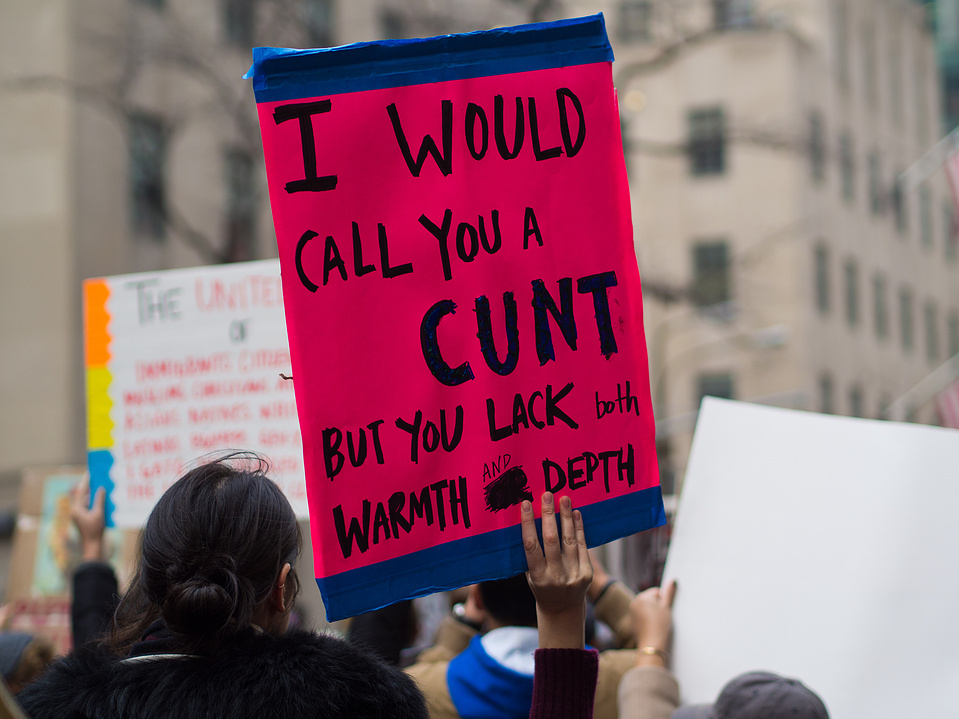 I WOULD
CALL YOU A
CUNT
BUT YOU LACK both
WARMTH AND DEPTH
THE UNITE
OF
IMMIGRANTS CITIZE